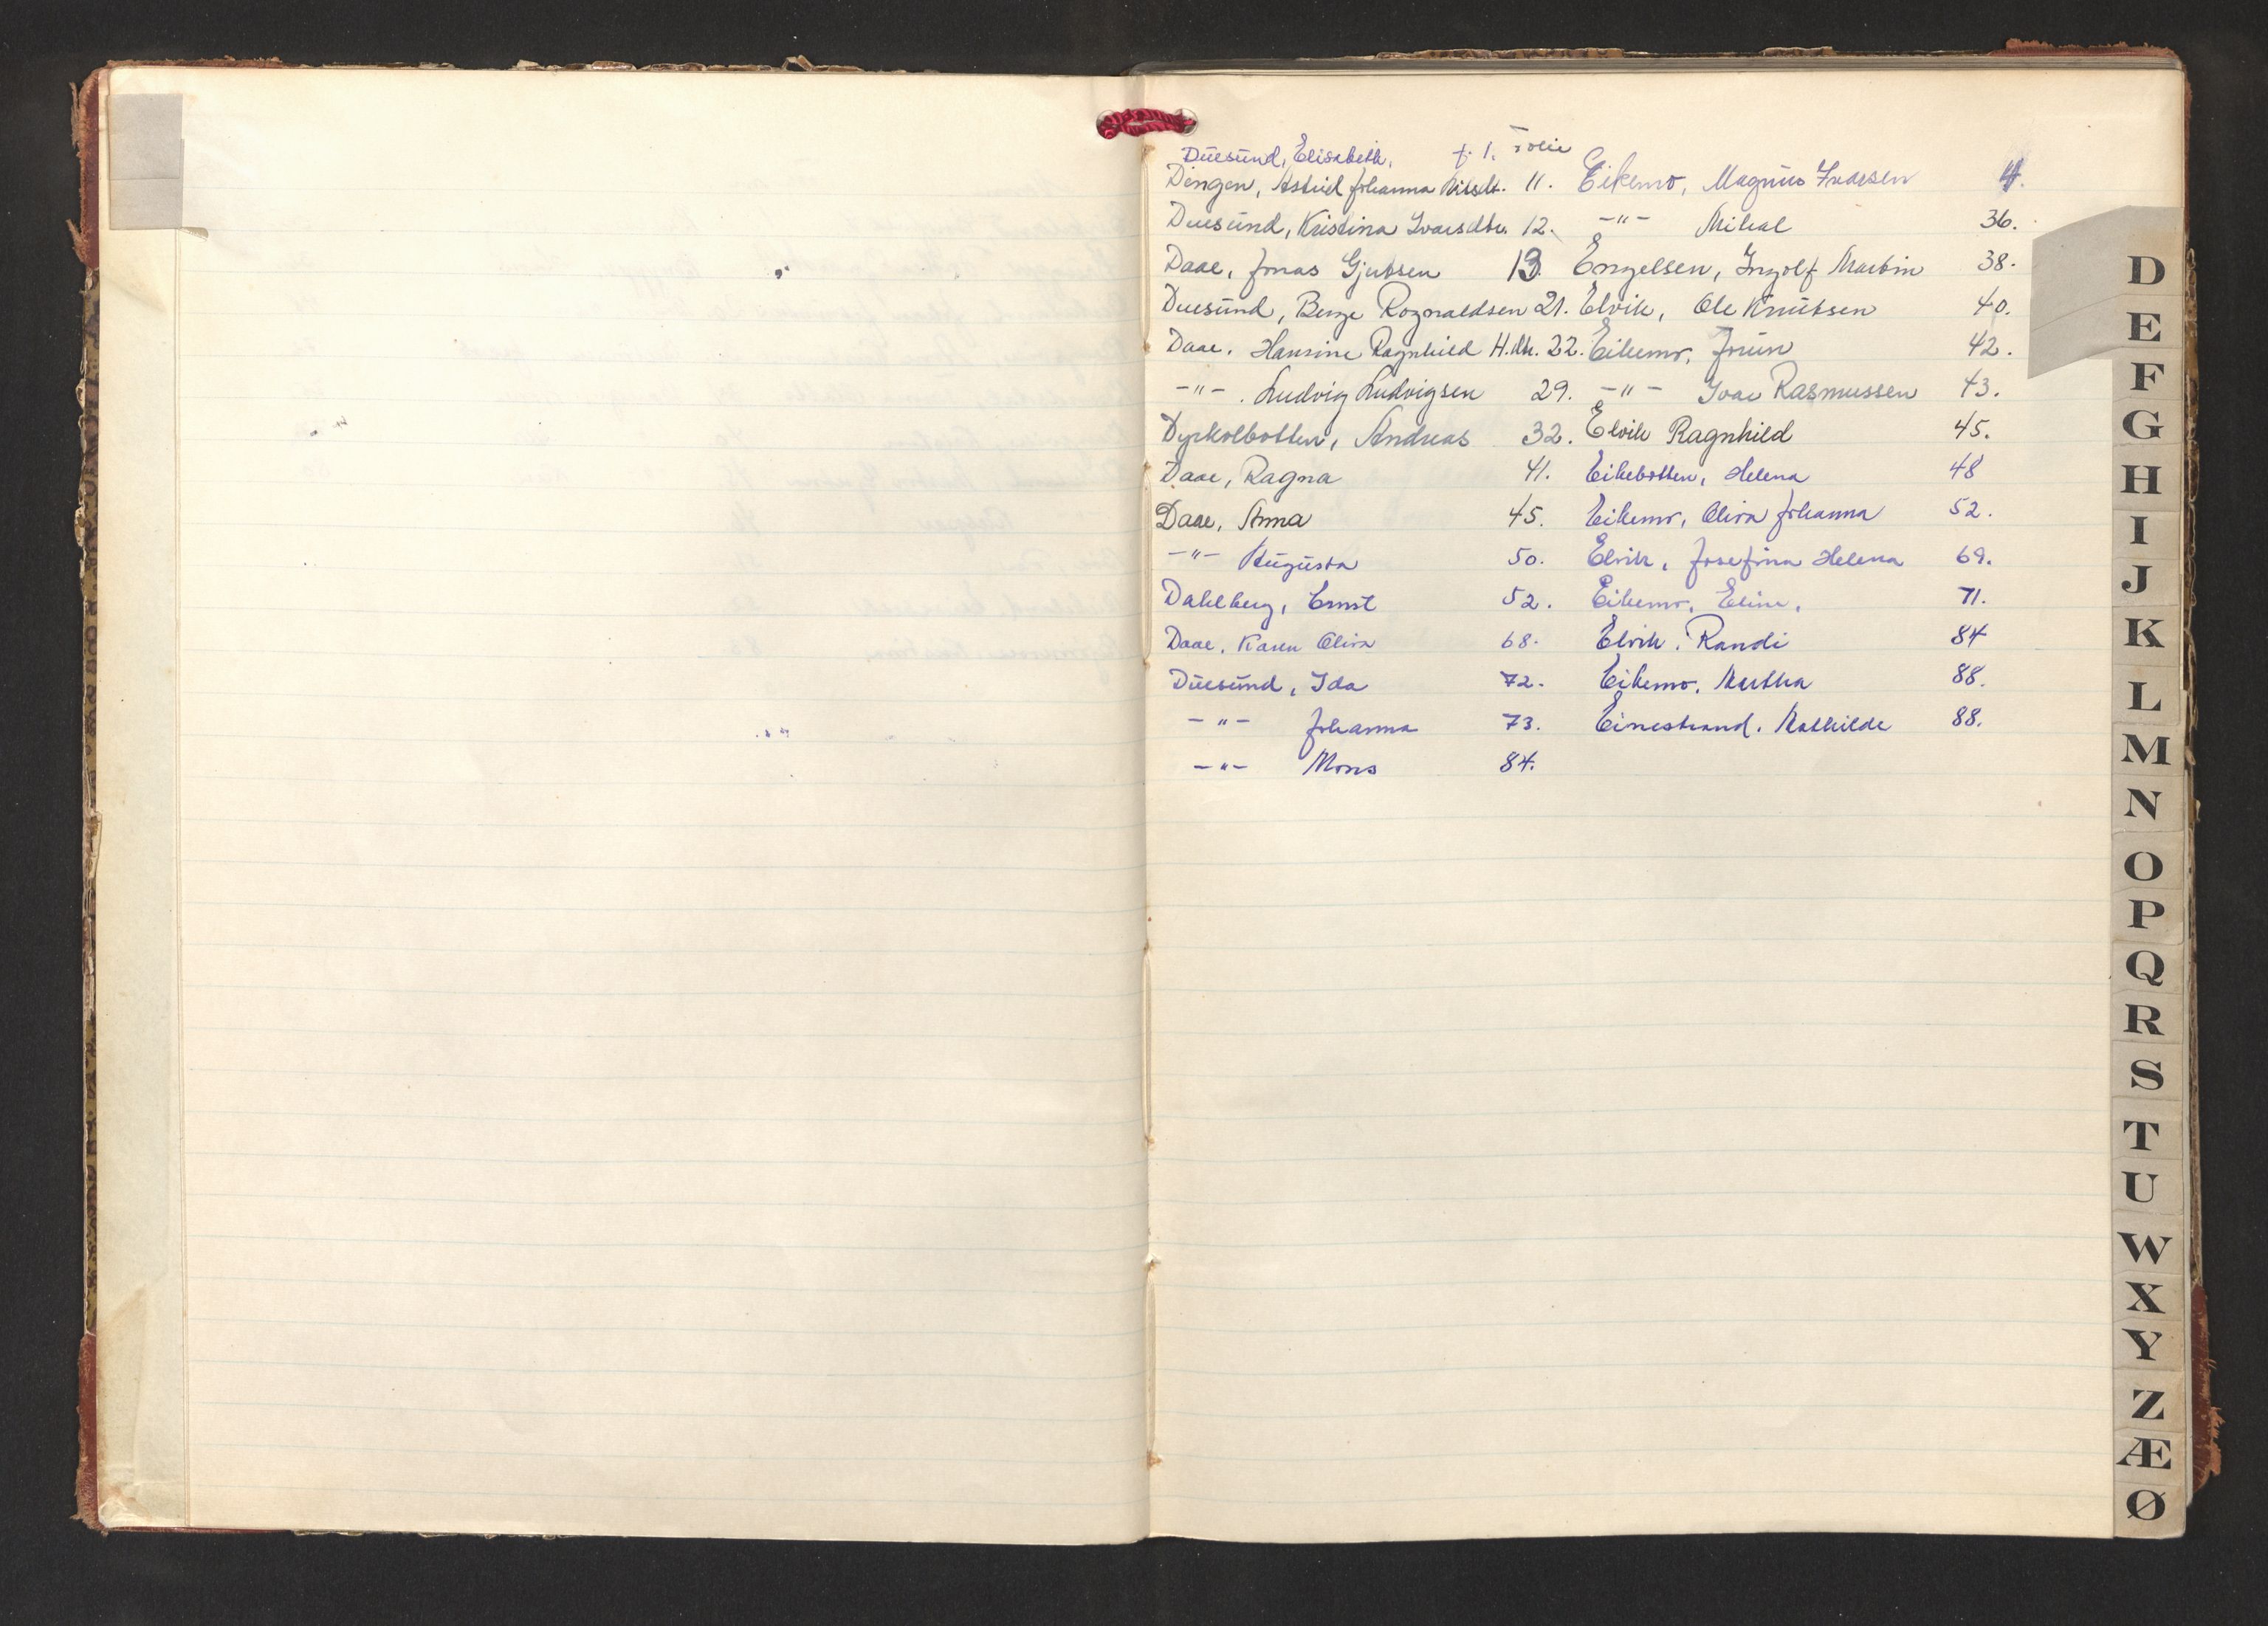 Duesund, Elisabeth, f. 1. Folie
Dingen, Astrid Johanna Nilsdt. 11.
Duesund, Kristina Ivarsdtr. 12.
Daae, Jonas Gjertsen 13.
Duesund, Berge Rognaldsen 21.
Daae, Hansine Ragnhild H.dtr. 22.
-"- . Ludvig Ludvigsen 29.
Dyrkolbotten, Andreas 32.
Daae, Ragna 41.
Daae, Anna 45.
-"- Augusta 50.
Dahlberg, Ernst 52.
Daae, Karen Oliva 68.
Duesund, Ida 72.
-"- Johanna 73.
-"- Mons 84.
Eikemo, Magnus Ivarsen 4.
-"- Mikal 36.
Engelsen, Ingolf Martin 38.
Elvik, Ole Knutsen 40.
Eikemo, Jorun 42.
-"- Ivar Rasmussen 43.
Elvik Ragnhild 45.
Eikebotten, Helena 48
Eikemo, Oliva Johanna 52.
Elvik, Josefina Helena 69.
Eikemo, Eline, 71.
Elvik, Randi 84
Eikemo, Martha 88.
Einestrand, Mathilde 88.
D
E
F
G
H
I
J
K
L
M
N
O
P
Q
R
S
T
U
W
X
Y
Z
Æ
Ø